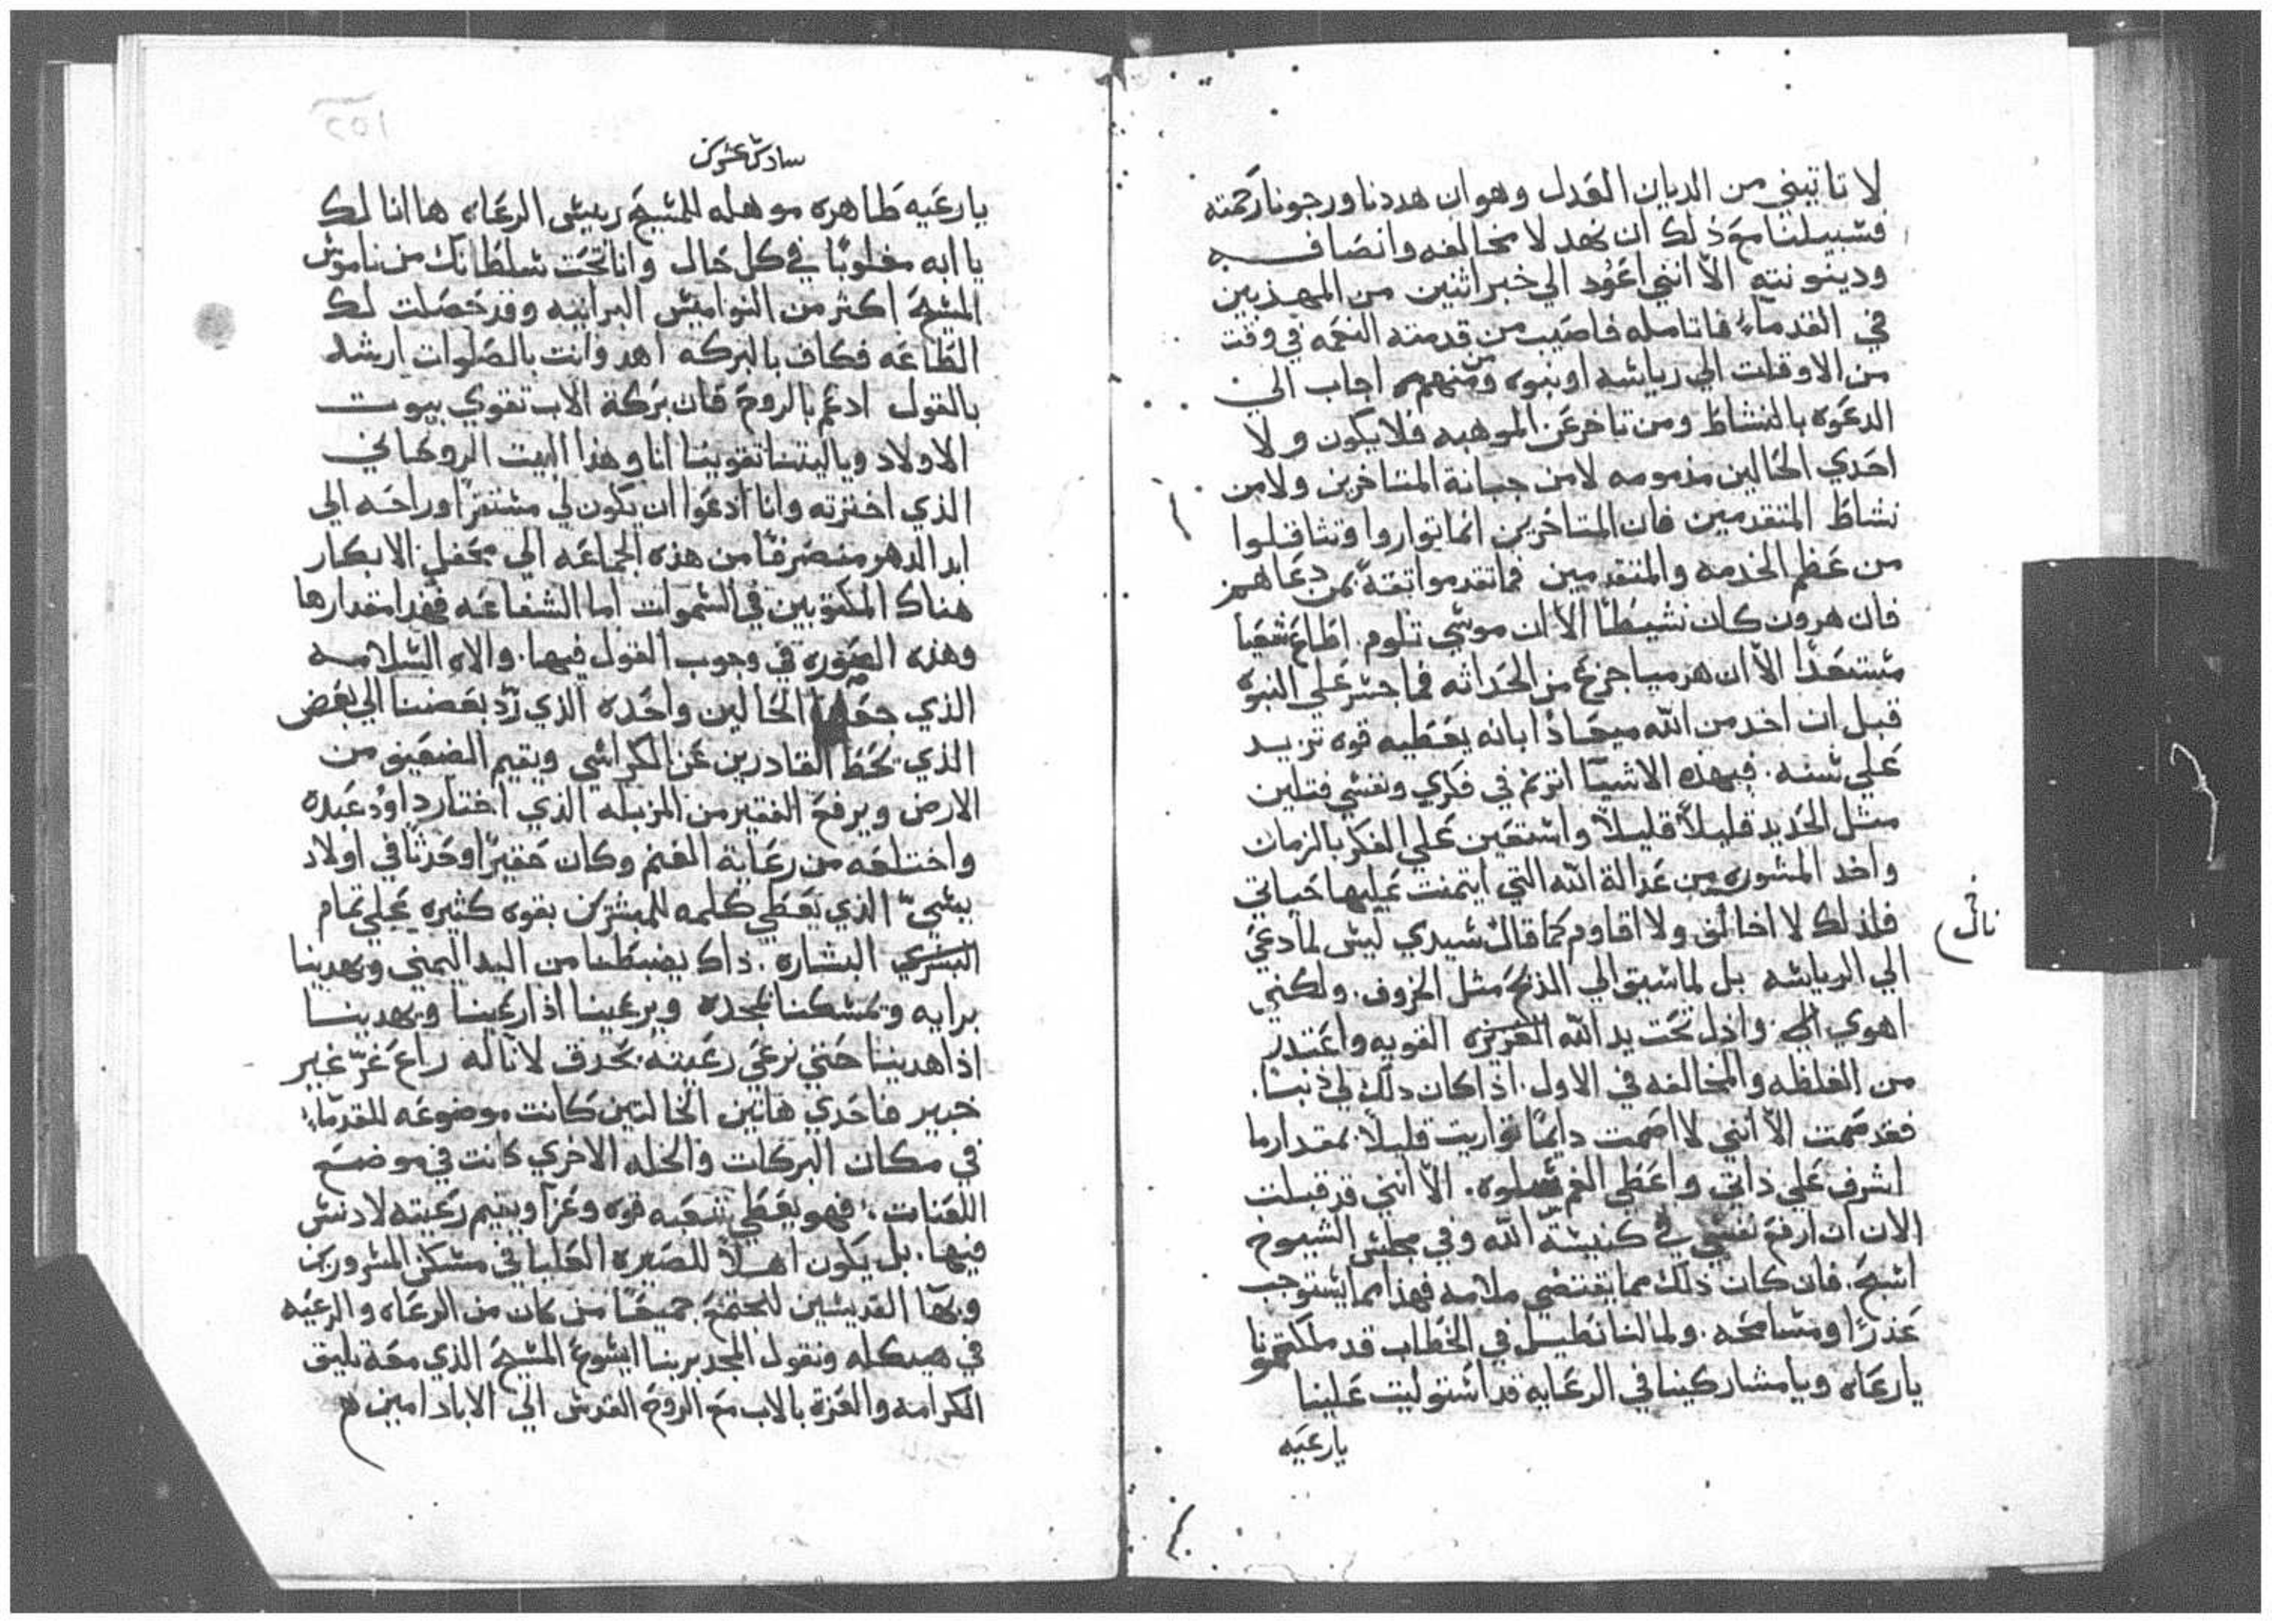 لا تاتيني من الديان العدل وهو ان هددنا ورجونا رحمته
فسبيلنا مع ذلك ان نهد لا مخالفه وانصافه
ودينونته الا انني اعود الي خبر اثنين من المهذبين
في القدماء فاتامله فاصيب من قدمته النعمه في وقت
من الاوقات الي رياسه او نبوه ومنهم من اجاب الي
الدعوه بالنشاط ومن تاخر عن الموهبه فلا يكون ولا
احدي الحالين مذمومه لا من جبانة المتاخرين ولا من
نشاط المتقدمين فان المتاخرين انما تواروا وتثاقلوا
من عظم الخدمه والمتقدمين فما تقدموا ثقةً بمن دعاهم
فان هرون كان نشيطا الا ان موسي تلوم. اطاع شعيا
مستعدا الا ان هرميا جزع من الحداثه فما جسر علي النبوه
قبل ان اخد من الله ميعادا بانه يعطيه قوه تزيد
علي سنه. فبهذه الاشيا اترنم في فكري ونفسي فتلين
مثل الحديد قليلاً قليلاً واستعين علي الفكر بالزمان
واخد المشوره من عدالة الله التي ايتمنت عليها حياتي
فلذلك لا اخالف ولا اقاوم كما قال سيدي ليس لما دعي
نال
الي الرياسه بل لما سيق الي الذبح مثل الخروف. ولكنني
اهوي الي واذل تحت يد الله العزيزه القويه واعتدر
من الغلظه والمخالفه في الاول. اذا كان دلك لي ذنبا.
فقد صمت الا انني لا اصمت دايما تواريت قليلاً بمقدار ما
اشرف علي ذاتي واعطي الغم سلوه. الا انني قد قبلت
الان ان ارفع نفسي في كنيسة الله وفي مجلس الشيوخ
اسبح. فان كان دلك مما يقتضي ملامه فهذا مما يستوجب
عذرًا ومسامحه. ولما لنا نطيل في الخطاب قد ملكتمونا
يا رعاه ويا مشاركينا في الرعايه قد استوليت علينا
يا رعيه
سادس عشر
يا رعيه طاهره موهله للمسيح ريس الرعاه ها انا لك
يا ابه مغلوبًا في كل حال وانا تحت سلطانك من ناموس
المسيح اكثر من النواميس البرانيه وقد حصلت لك
الطاعه فكاف بالبركه اهد وانت بالصلوات ارشد
بالقول ادعم بالروح فان بركة الاب تقوي بيوت
الاولاد ويا ليتنا تقوينا انا وهذا البيت الروحاني
الذي اخترته وانا ادعوا ان يكون لي مستقرًا وراحه الي
ابد الدهر منصرفًا من هذه الجماعه الي محفل الابكار
هناك المكتوبين في السموات اما الشفاعه فهدا مقدارها
وهذه الصوره في وجوب القول فيها. والاه السلامه
الذي جعل الحالين واحده الذي رد بعضنا الي بعض
الذي يحط القادرين عن الكراسي ويقيم الضعيف من
الارض ويرفع الفقير من المزبله الذي اختار داود عبده
واختلعه من رعاية الغنم وكان حقيرًا وحدثًا في اولاد
يسي الذي يعطي كلمه للمبشرين بقوه كثيره علي تمام
البشري البشاره. داك يضبطنا من اليد اليمني ويهدينا
برايه ويمسكنا بمجده ويرعينا اذا رعينا ويهدينا
اذا هدينا حتي نرعي رعيته بحدق لا بآله راع غر غير
خبير فاحدي هاتين الخالتين كانت موضوعه للقدماء
في مكان البركات والخله الاخري كانت في موضع
اللعنات. فهو يعطي شعبه قوه وعزا ويقيم رعيته لا دنس
فيها. بل يكون اهلاً للصيره العليا في مسكن المسرورين
وبها القديسين لنجتمع جميعًا من كان من الرعاه والرعيه
في هيكله ونقول المجد بربنا ايسوع المسيح الذي معه يليق
الكرامه والعزة بالاب مع الروح القدس الي الاباد امين